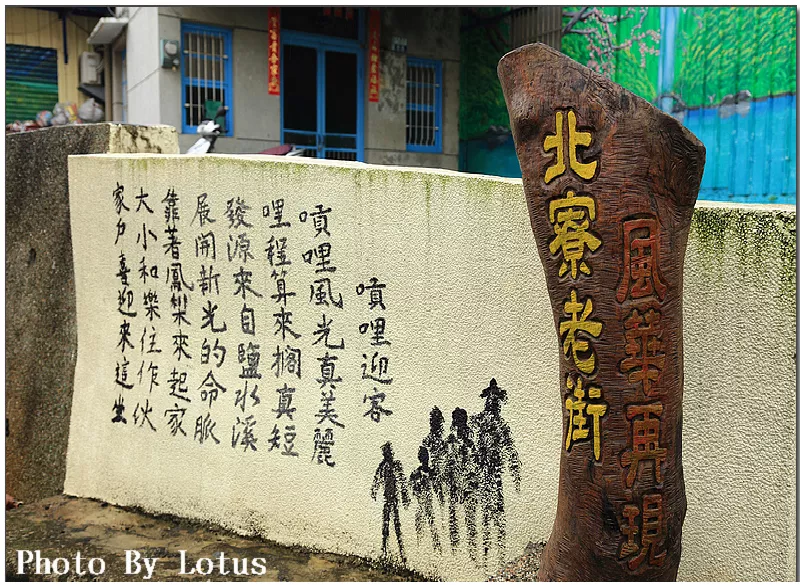 北寮老街
風華再現
噴哩迎客
噴哩風光真美麗
哩程算來擱真短
發源來自鹽水溪
展開新光的命脈
靠著鳳梨來起家
大小和樂住作伙
家戶喜迎來這坐
Photo By Lotus